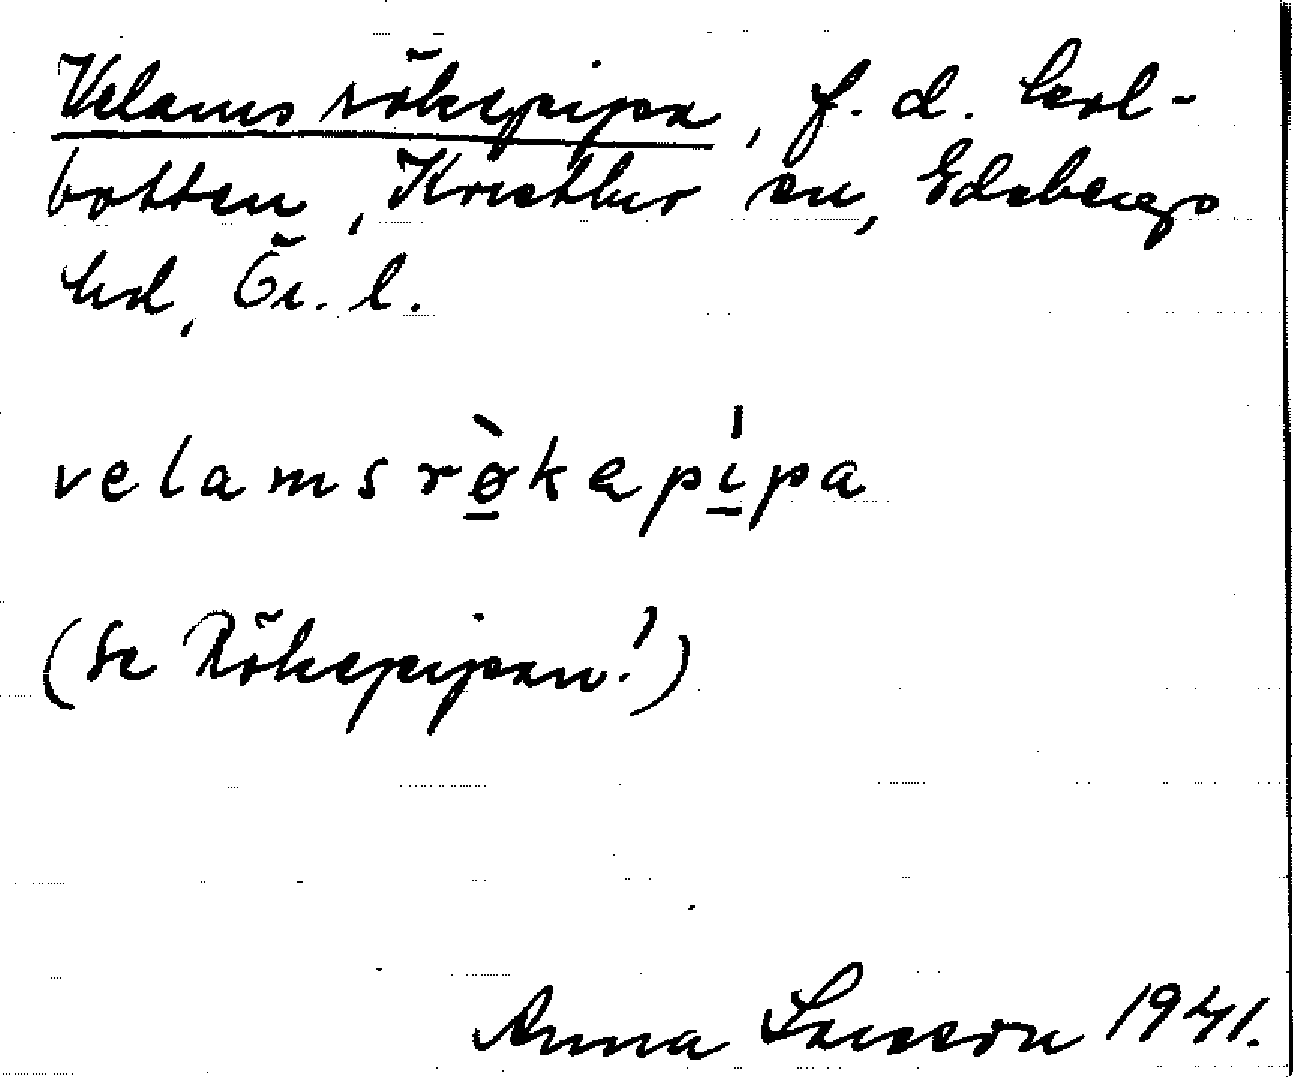 Velams rökepipa, f. d. kol-
botten, Kvistbro sn, Edsbergs
hd, Ör. l.
velamsrø̲̀kəpi̲̍pa
(Se Rökepipan!)
Anna Larsson 1941.